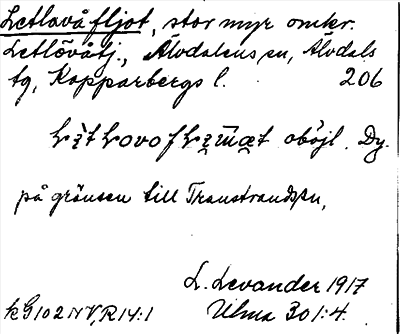 Letlavåfljot, stor myr omkr.
Letlövåtj., Älvdalens sn, Älvdals
tg, Kopparbergs l. 206
oböjl. Dy.
på gränsen till Transtrands sn,
L. Levander 1917
kG102NV, R14:1 Ulma 301:4.